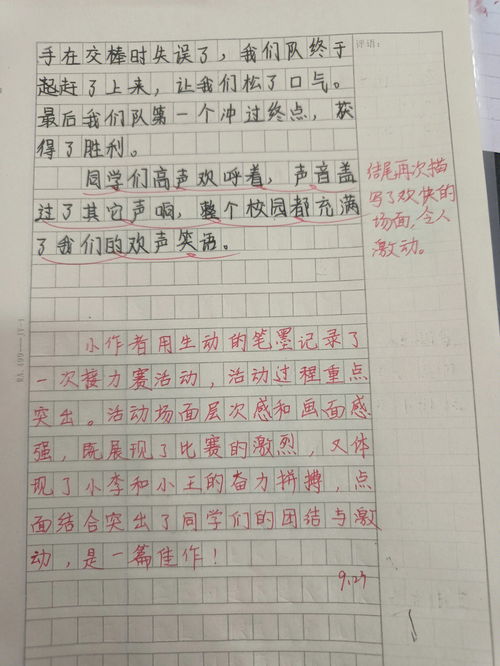 手在交棒时失误了，我们队终于
起赶了上来，让我们松了口气。
最后我们队第一个冲过终点，获
得了胜利。
同学们高声欢呼着，声音盖
过了其它声响，整个校园都充满
了我们的欢声笑语。
评语：
结尾再次描
写了欢快的
场面，令人
激动。
小作者用生动的笔墨记录了
一次接力赛活动，活动过程重点
突出。活动场面层次感和画面感
强，既展现了比赛的激烈，又体
现了小李和小王的奋力拼搏，点
面结合突出了同学们的团结与激
动，是一篇佳作！
9.27